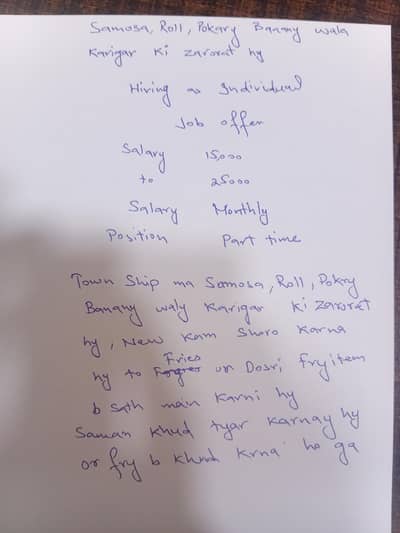 Samosa, Roll, Pokary Banany wala
Karigar Ki zarorat hy
Hiring as Individual
Job offer
Salary 15,000
to 25000
Salary Monthly
Position Part time
Town Ship ma Samosa, Roll, Pokry
Banany waly Karigar Ki zarorat
hy, New kam shoro karna
hy to Fries or Dosri fry item
b sath main karni hy
Saman khud tyar karnay hy
or fry b khud krna ho ga